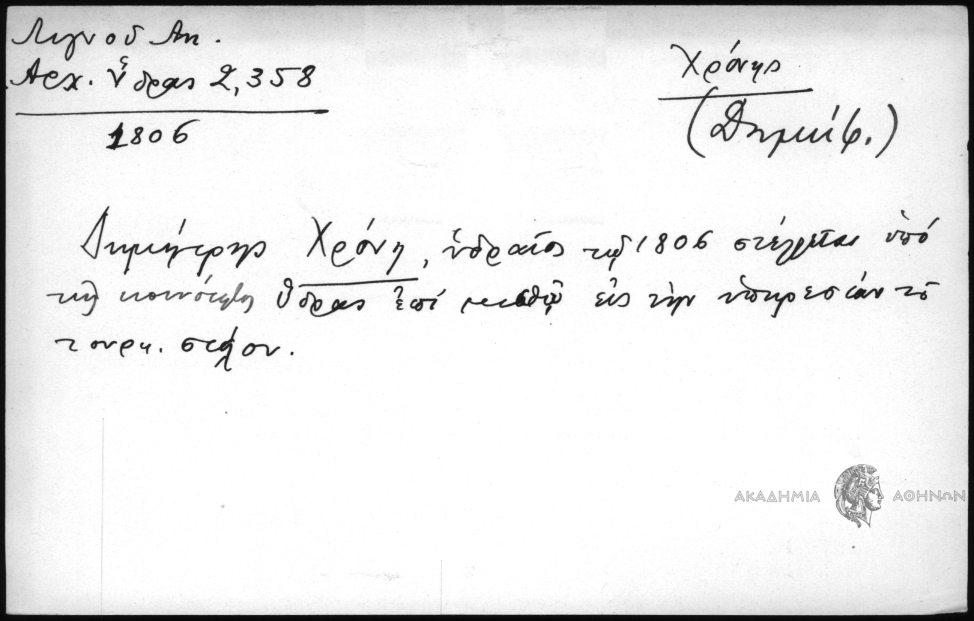 Λιγνοδ Αν.
Αρχ. Ὕδρας 2,358
1806
Χρόνης
(Δημήτρ.)
Δημήτρης Χρόνη, ὑδραῖος τῷ 1806 στέλλεται ὑπό
τῆς κοινότητος Ὕδρας ἐπί μισθῷ εἰς τὴν ὑπηρεσίαν τοῦ
τουρκ. στόλου.
ΑΚΑΔΗΜΙΑ ΑΘΗΝΩΝ